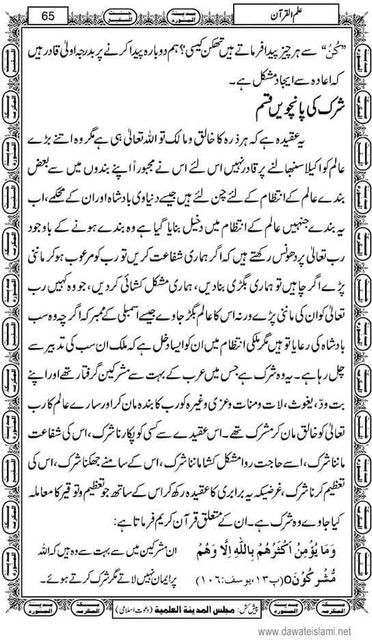 65
علم القرآن
"کُنْ" سے ہر چیز پیدا فرماتے ہیں تھکن کیسی؟ ہم دوبارہ پیدا کرنے پر بدرجہ اولیٰ قادر ہیں
کہ اعادہ سے ایجاد مشکل ہے۔
شرک کی پانچویں قسم
یہ عقیدہ ہے کہ ہر ذرہ کا خالق و مالک تو اللہ تعالیٰ ہی ہے مگر وہ اتنے بڑے
عالم کو اکیلا سنبھالنے پر قادر نہیں اس لئے اس نے مجبوراً اپنے بندوں میں سے بعض
بندے عالم کے انتظام کے لئے چن لئے ہیں جیسے دنیاوی بادشاہ اور ان کے محکمے، اب
یہ بندے جنہیں عالم کے انتظام میں دخیل بنایا گیا ہے وہ بندے ہونے کے باوجود
رب تعالیٰ پر دھونس رکھتے ہیں کہ اگر ہماری شفاعت کریں تو رب کو مرعوب ہو کر ماننی
پڑے اگر چاہیں تو ہماری بگڑی بنادیں، ہماری مشکل کشائی کر دیں، جو وہ کہیں رب
تعالیٰ کو ان کی ماننی پڑے ورنہ اس کا عالم بگڑ جاوے جیسے اسمبلی کے ممبر کہ اگرچہ وہ سب
بادشاہ کی رعایا تو ہیں مگر ملکی انتظام میں ان کو ایسا دخل ہے کہ ملک ان سب کی تدبیر سے
چل رہا ہے۔ یہ وہ شرک ہے جس میں عرب کے بہت سے مشرکین گرفتار تھے اور اپنے
بت ودّ، یغوث، لات و منات و عزی وغیرہ کو رب کا بندہ مان کر اور سارے عالم کا رب
تعالیٰ کو خالق مان کر مشرک تھے۔ اس عقیدے سے کسی کو پکارنا شرک، اس کی شفاعت
ماننا شرک، اسے حاجت روا مشکل کشا ماننا شرک، اس کے سامنے جھکنا شرک، اس کی
تعظیم کرنا شرک، غرضیکہ یہ برابری کا عقیدہ رکھ کر اس کے ساتھ جو تعظیم و توقیر کا معاملہ
کیا جاوے وہ شرک ہے۔ ان کے متعلق قرآن کریم فرماتا ہے:
وَمَا یُؤْمِنُ اَکْثَرُهُمْ بِاللّٰهِ اِلَّا وَهُمْ ان مشرکین میں سے بہت سے وہ ہیں کہ اللہ
مُّشْرِکُوْنَ○ (پ۱۳، یوسف:۱۰۶) پر ایمان نہیں لاتے مگر شرک کرتے ہوئے۔
پیش کش: مجلس المدينة العلمية (دعوت اسلامی)
www.dawateislami.net